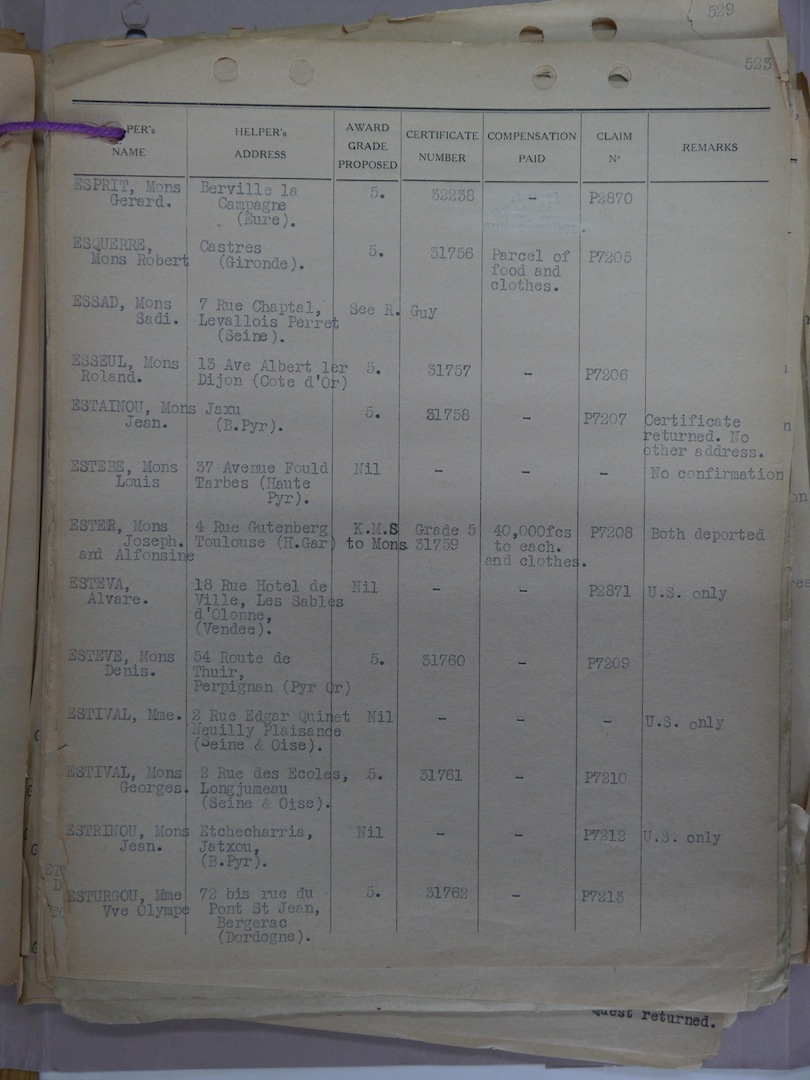 529
523
PER's NAME HELPER's ADDRESS AWARD GRADE PROPOSED CERTIFICATE NUMBER COMPENSATION PAID CLAIM Nº REMARKS
ESPRIT, Mons Berville la 5. 32238 - P2870
Gerard. Campagne
(Eure).
ESQUERRE, Castres 5. 31756 Parcel of P7205
Mons Robert (Gironde). food and
clothes.
ESSAD, Mons 7 Rue Chaptal, See R. Guy
Sadi. Levallois Perret
(Seine).
ESSEUL, Mons 13 Ave Albert 1er 5. 31757 - P7206
Roland. Dijon (Cote d'Or)
ESTAINOU, Mons Jaxu 5. 31758 - P7207 Certificate
Jean. (B.Pyr). returned. No
other address.
ESTEBE, Mons 37 Avenue Fould Nil - - - No confirmation
Louis Tarbes (Haute
Pyr).
ESTER, Mons 4 Rue Gutenberg K.M.S Grade 5 40,000fcs P7208 Both deported
Joseph. Toulouse (H.Gar) to Mons 31759 to each.
and Alfonsine and clothes.
ESTEVA, 18 Rue Hotel de Nil - - P2871 U.S. only
Alvare. Ville, Les Sables
d'Olonne,
(Vendee).
ESTEVE, Mons 54 Route de 5. 31760 - P7209
Denis. Thuir,
Perpignan (Pyr Or)
ESTIVAL, Mme. 2 Rue Edgar Quinet Nil - - - U.S. only
Neuilly Plaisance
(Seine & Oise).
ESTIVAL, Mons 2 Rue des Ecoles, 5. 31761 - P7210
Georges. Longjumeau
(Seine & Oise).
ESTRINOU, Mons Etchecharria, Nil - - P7212 U.S. only
Jean. Jatxou,
(B.Pyr).
ESTURGOU, Mme 72 bis rue du 5. 31762 - P7213
Vve Olympe Pont St Jean,
Bergerac
(Dordogne).
returned.